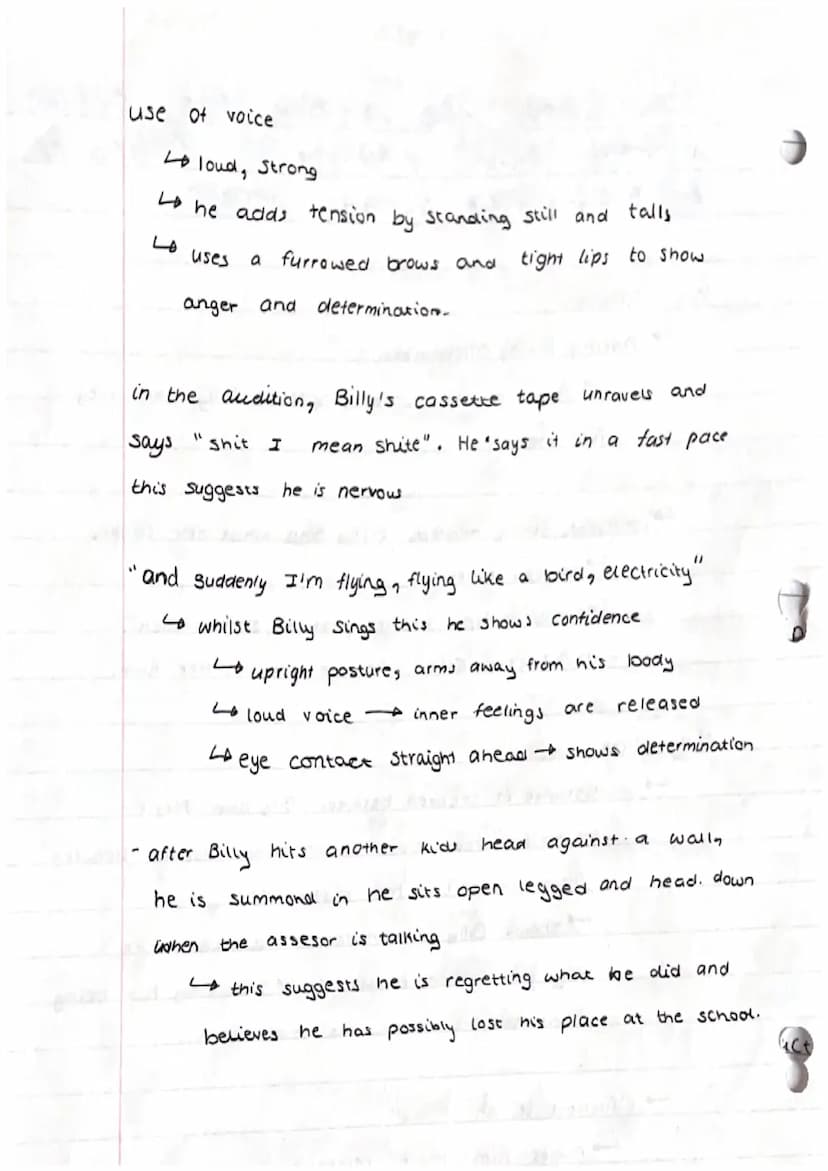 use of voice
↳ loud, strong
↳ he adds tension by standing still and talls
↳ uses a furrowed brows and tight lips to show
anger and determination.
in the audition, Billy's cassette tape unravels and
says "shit I mean shite". He says it in a fast pace
this suggests he is nervous
"and suddenly I'm flying, flying like a bird, electricity"
↳ whilst Billy sings this he shows confidence
↳ upright posture, arms away from his body
↳ loud voice → inner feelings are released
↳ eye contact straight ahead → shows determination
- after Billy hits another kids head against a wall,
he is summond in he sits open legged and head. down
when the assesor is talking
↳ this suggests he is regretting what he did and
believes he has possibly lost his place at the school.
ict